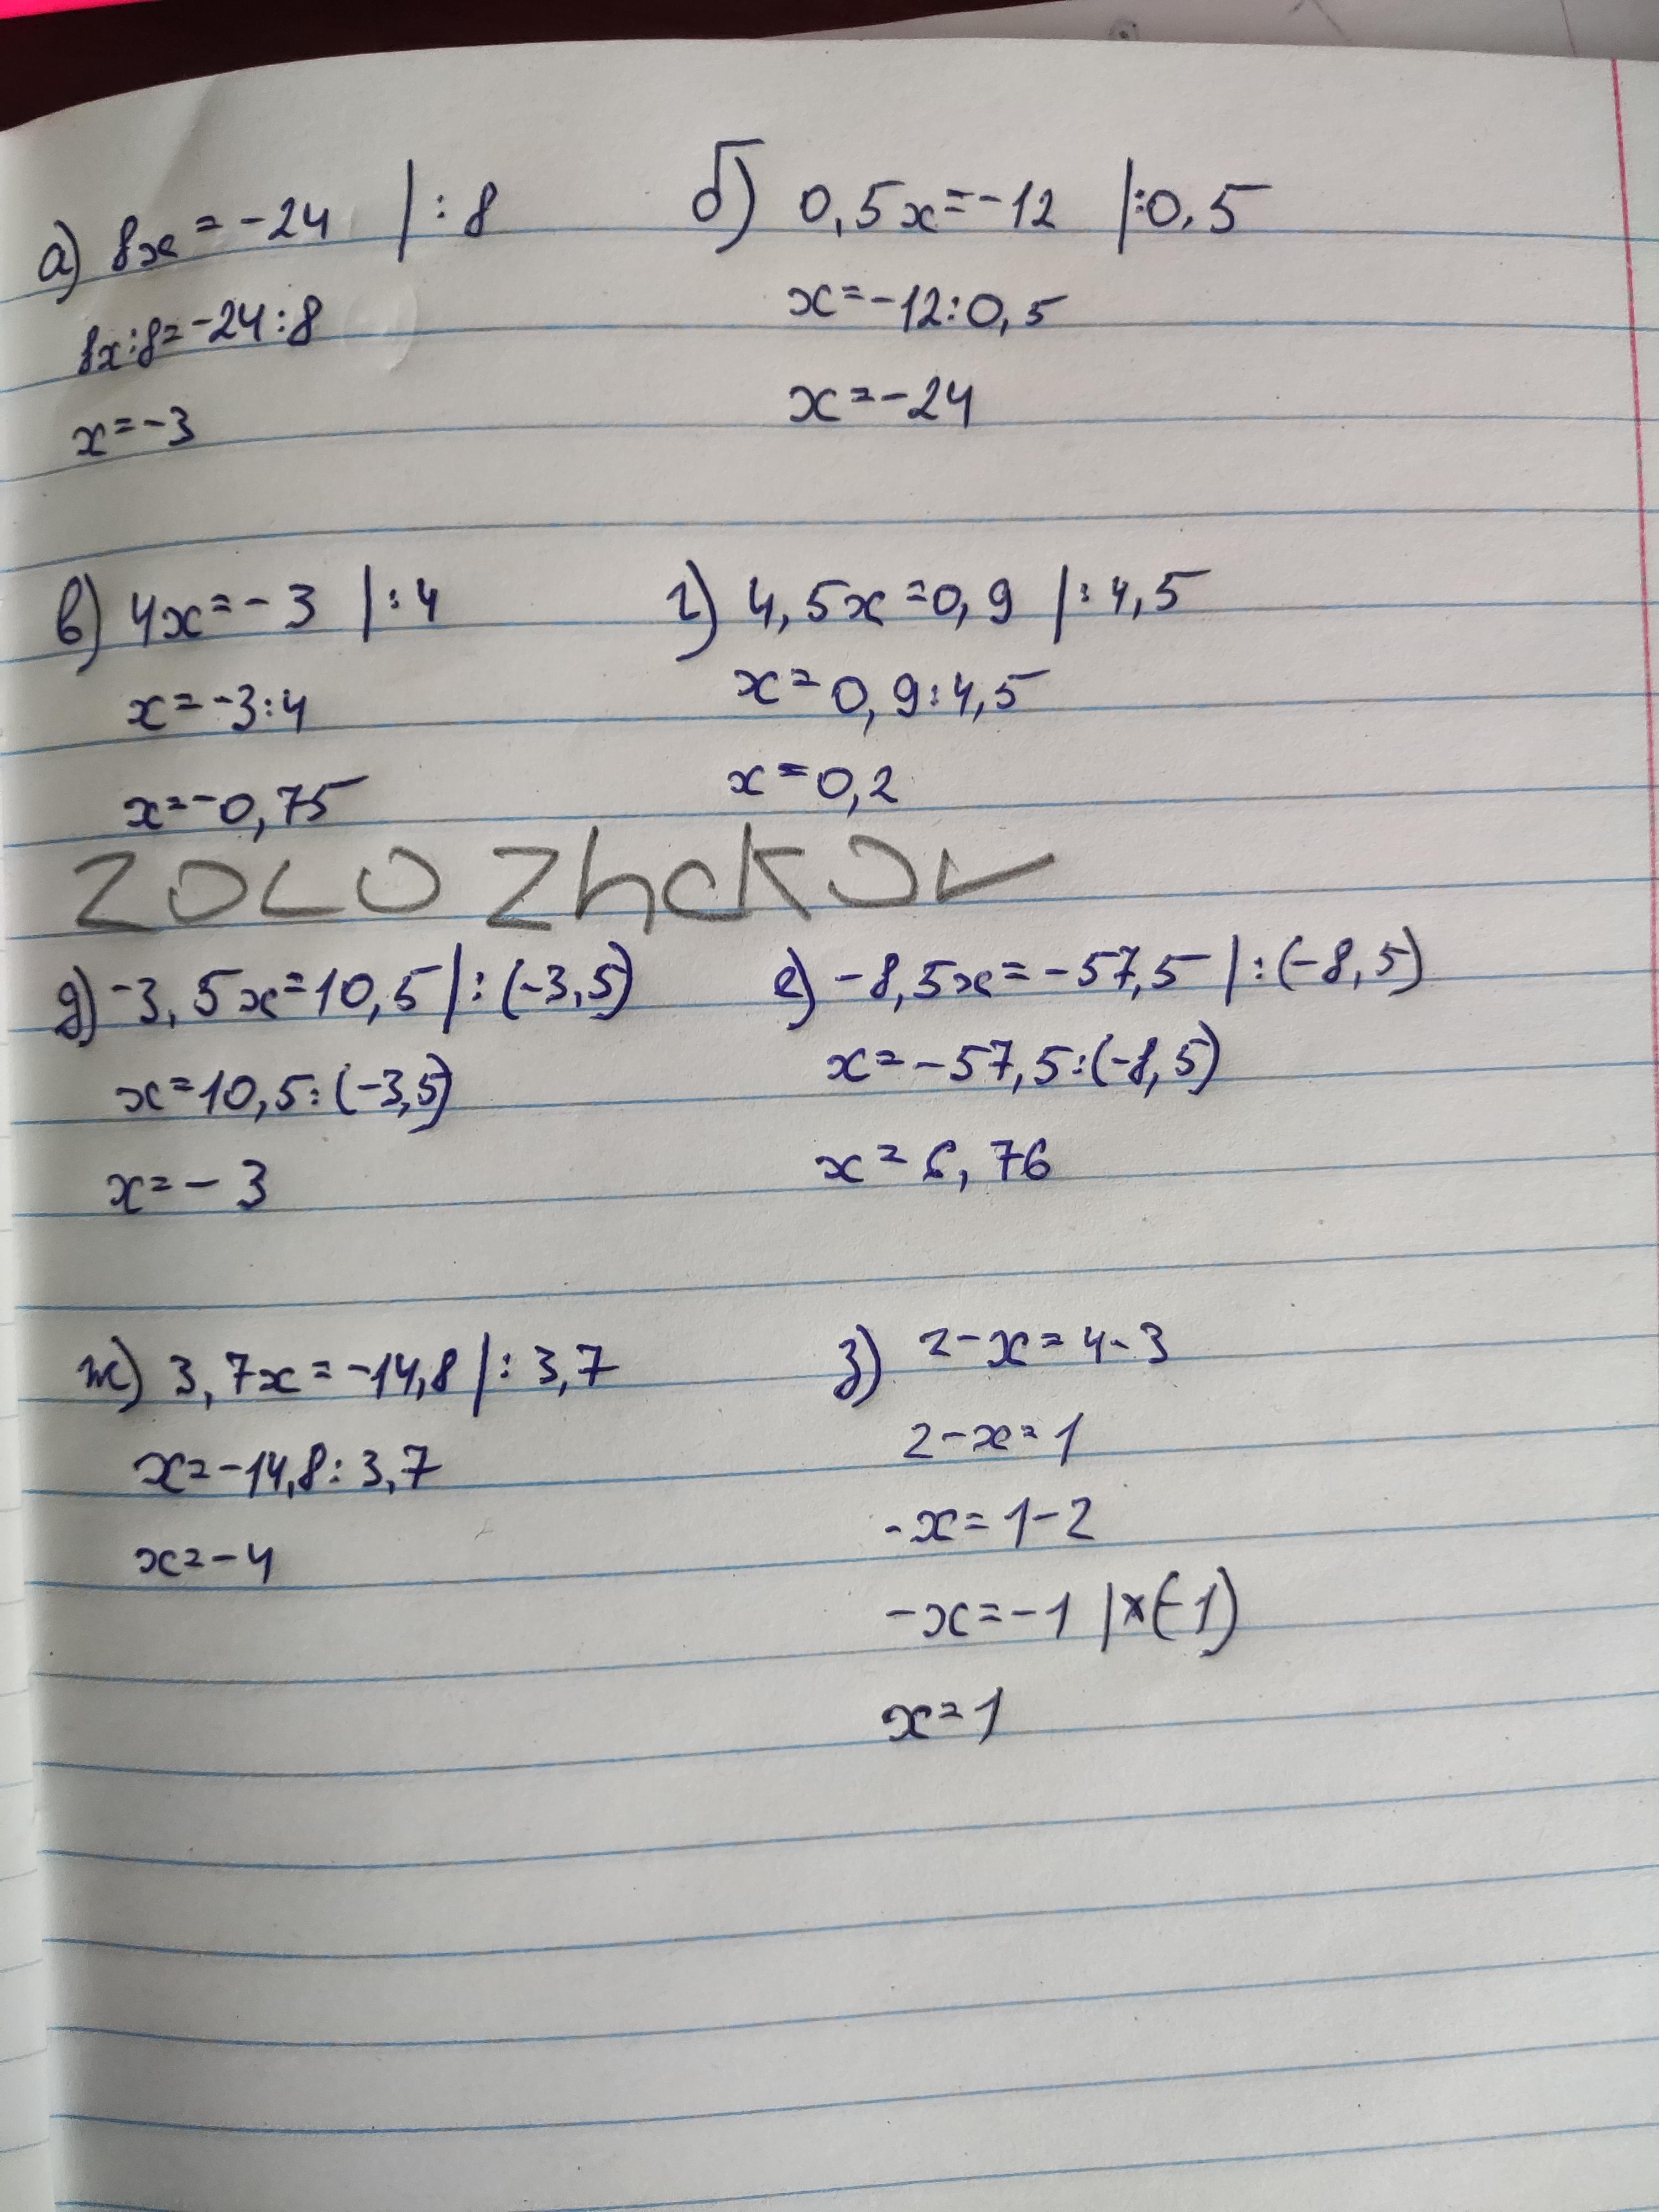 а) 8x = -24 | : 8
8x:8=-24:8
x=-3
б) 0,5x=-12 |:0,5
x=-12:0,5
x=-24
в) 4x=-3 |:4
x=-3:4
x=-0,75
г) 4,5x=0,9 |:4,5
x=0,9:4,5
x=0,2
д) -3,5x=10,5 |:(-3,5)
x=10,5:(-3,5)
x=-3
е) -8,5x=-57,5 |:(-8,5)
x=-57,5:(-8,5)
x=6,76
ж) 3,7x=-14,8 |:3,7
x=-14,8:3,7
x=-4
з) 2-x=4-3
2-x=1
-x=1-2
-x=-1 |×(-1)
x=1